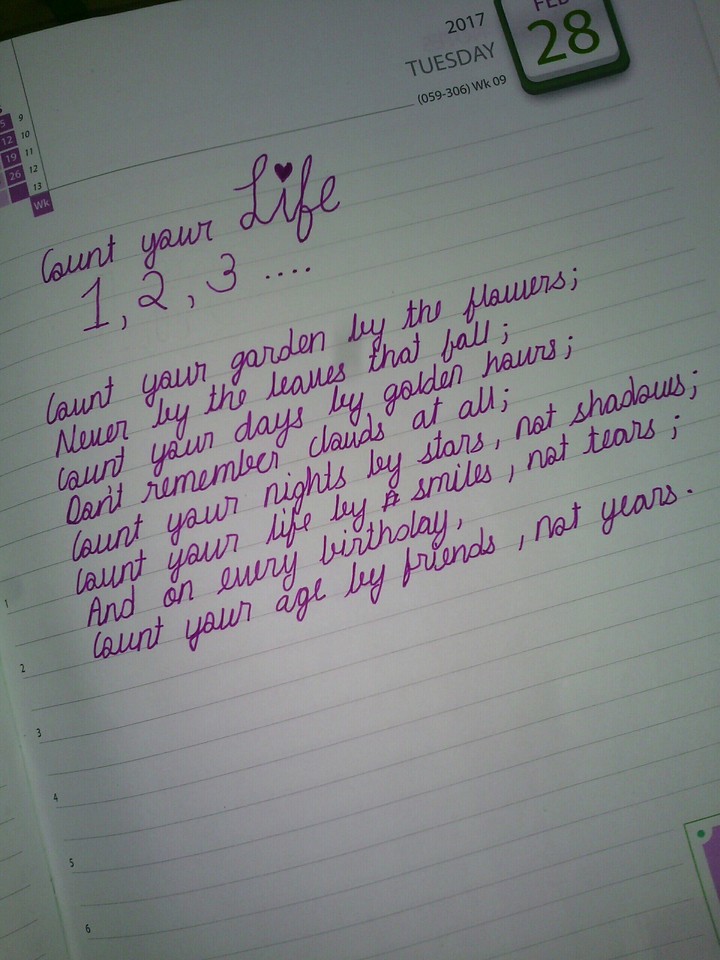 FEB
2017
28
TUESDAY
(059-306) Wk 09
5 9
12 10
19 11
26 12
13
Wk
Count your Life
1, 2, 3 ....
Count your garden by the flowers;
Never by the leaves that fall;
Count your days by golden hours;
Don't remember clouds at all;
Count your nights by stars, not shadows;
Count your life by smiles, not tears;
And on every birthday,
Count your age by friends, not years.
1
2
3
4
5
6